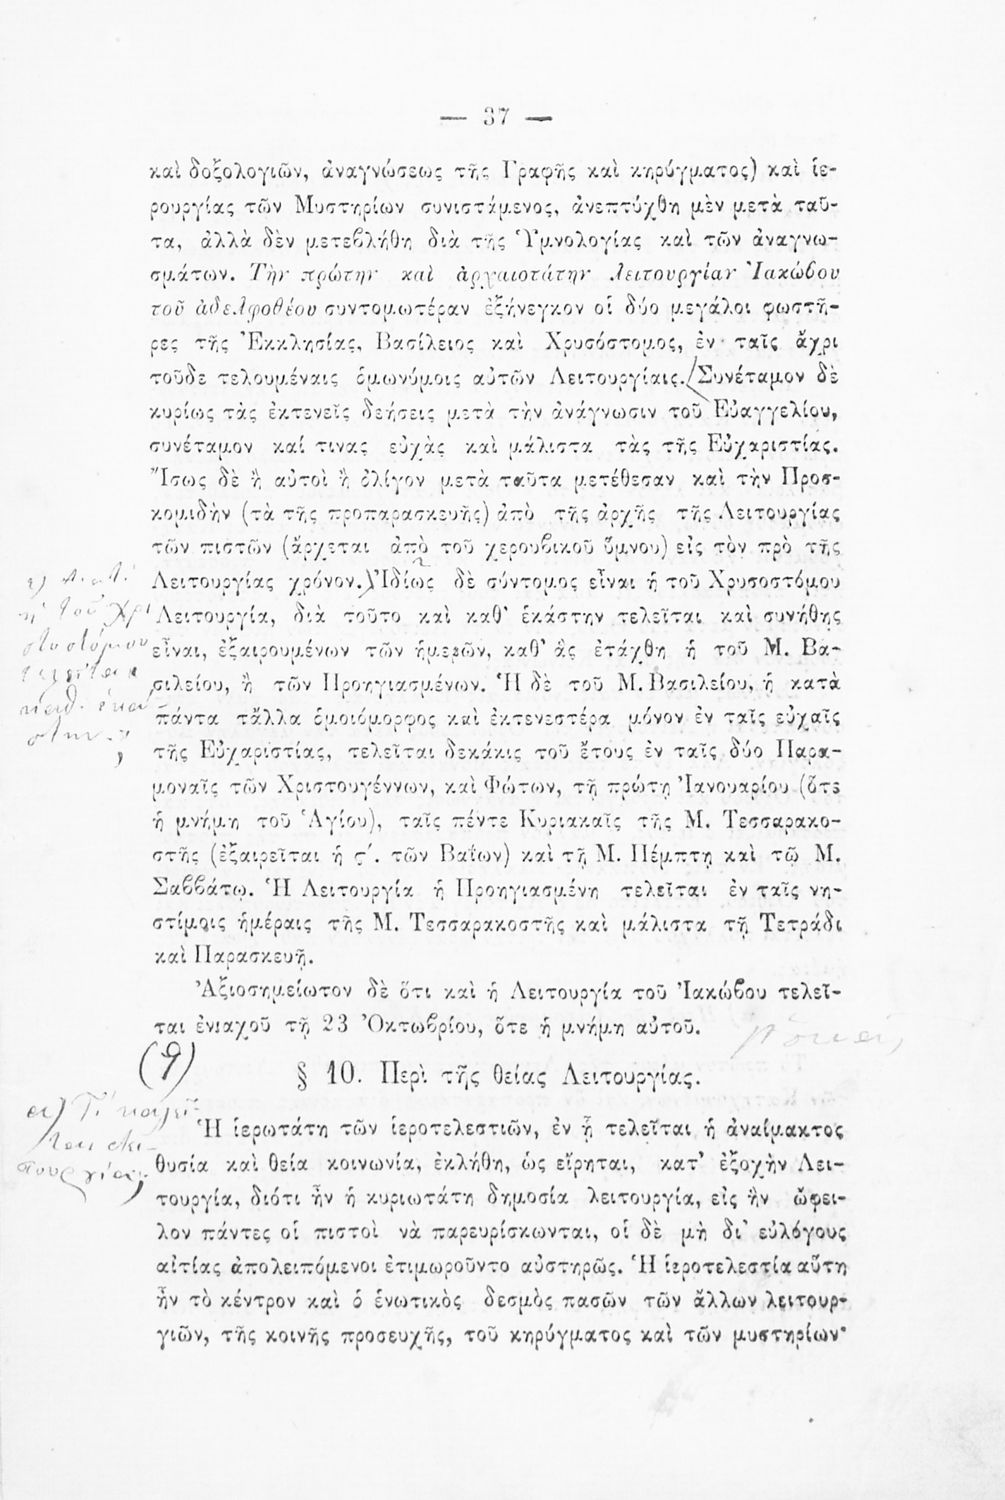 — 37 —
καὶ δοξολογιῶν, ἀναγνώσεως τῆς Γραφῆς καὶ κηρύγματος) καὶ ἱε-
ρουργίας τῶν Μυστηρίων συνιστάμενος, ἀνεπτύχθη μὲν μετὰ ταῦ-
τα, ἀλλὰ δὲν μετεβλήθη διὰ τῆς Ὑμνολογίας καὶ τῶν ἀναγνω-
σμάτων. Τὴν πρώτην καὶ ἀρχαιοτάτην Λειτουργίαν Ἰακώβου
τοῦ ἀδελφοθέου συντομωτέραν ἐξήνεγκον οἱ δύο μεγάλοι φωστῆ-
ρες τῆς Ἐκκλησίας, Βασίλειος καὶ Χρυσόστομος, ἐν ταῖς ἄχρι
τοῦδε τελουμέναις ὁμωνύμοις αὐτῶν Λειτουργίαις. Συνέταμον δὲ
κυρίως τὰς ἐκτενεῖς δεήσεις μετὰ τὴν ἀνάγνωσιν τοῦ Εὐαγγελίου,
συνέταμον καί τινας εὐχὰς καὶ μάλιστα τὰς τῆς Εὐχαριστίας.
Ἴσως δὲ ἢ αὐτοὶ ἢ ὀλίγον μετὰ ταῦτα μετέθεσαν καὶ τὴν Προσ-
κομιδὴν (τὰ τῆς προπαρασκευῆς) ἀπὸ τῆς ἀρχῆς τῆς Λειτουργίας
τῶν πιστῶν (ἄρχεται ἀπὸ τοῦ χερουβικοῦ ὕμνου) εἰς τὸν πρὸ τῆς
Λειτουργίας χρόνον. Ἰδίως δὲ σύντομος εἶναι ἡ τοῦ Χρυσοστόμου
Λειτουργία, διὰ τοῦτο καὶ καθ' ἑκάστην τελεῖται καὶ συνήθης
εἶναι, ἐξαιρουμένων τῶν ἡμερῶν, καθ' ἃς ἐτάχθη ἡ τοῦ Μ. Βα-
σιλείου, ἢ τῶν Προηγιασμένων. Ἡ δὲ τοῦ Μ. Βασιλείου, ἡ κατὰ
πάντα τἄλλα ὁμοιόμορφος καὶ ἐκτενεστέρα μόνον ἐν ταῖς εὐχαῖς
τῆς Εὐχαριστίας, τελεῖται δεκάκις τοῦ ἔτους ἐν ταῖς δύο Παρα-
μοναῖς τῶν Χριστουγέννων, καὶ Φώτων, τῇ πρώτῃ Ἰανουαρίου (ὅτε
ἡ μνήμη τοῦ Ἁγίου), ταῖς πέντε Κυριακαῖς τῆς Μ. Τεσσαρακο-
στῆς (ἐξαιρεῖται ἡ ς΄. τῶν Βαΐων) καὶ τῇ Μ. Πέμπτῃ καὶ τῷ Μ.
Σαββάτῳ. Ἡ Λειτουργία ἡ Προηγιασμένη τελεῖται ἐν ταῖς νη-
στίμοις ἡμέραις τῆς Μ. Τεσσαρακοστῆς καὶ μάλιστα τῇ Τετράδι
καὶ Παρασκευῇ.
Ἀξιοσημείωτον δὲ ὅτι καὶ ἡ Λειτουργία τοῦ Ἰακώβου τελεῖ-
ται ἐνιαχοῦ τῇ 23 Ὀκτωβρίου, ὅτε ἡ μνήμη αὐτοῦ.
(9)
§ 10. Περὶ τῆς θείας Λειτουργίας.
Ἡ ἱερωτάτη τῶν ἱεροτελεστιῶν, ἐν ᾗ τελεῖται ἡ ἀναίμακτος
θυσία καὶ θεία κοινωνία, ἐκλήθη, ὡς εἴρηται, κατ' ἐξοχὴν Λει-
τουργία, διότι ἦν ἡ κυριωτάτη δημοσία λειτουργία, εἰς ἣν ὤφει-
λον πάντες οἱ πιστοὶ νὰ παρευρίσκωνται, οἱ δὲ μὴ δι' εὐλόγους
αἰτίας ἀπολειπόμενοι ἐτιμωροῦντο αὐστηρῶς. Ἡ ἱεροτελεστία αὕτη
ἦν τὸ κέντρον καὶ ὁ ἑνωτικὸς δεσμὸς πασῶν τῶν ἄλλων λειτουρ-
γιῶν, τῆς κοινῆς προσευχῆς, τοῦ κηρύγματος καὶ τῶν μυστηρίων·